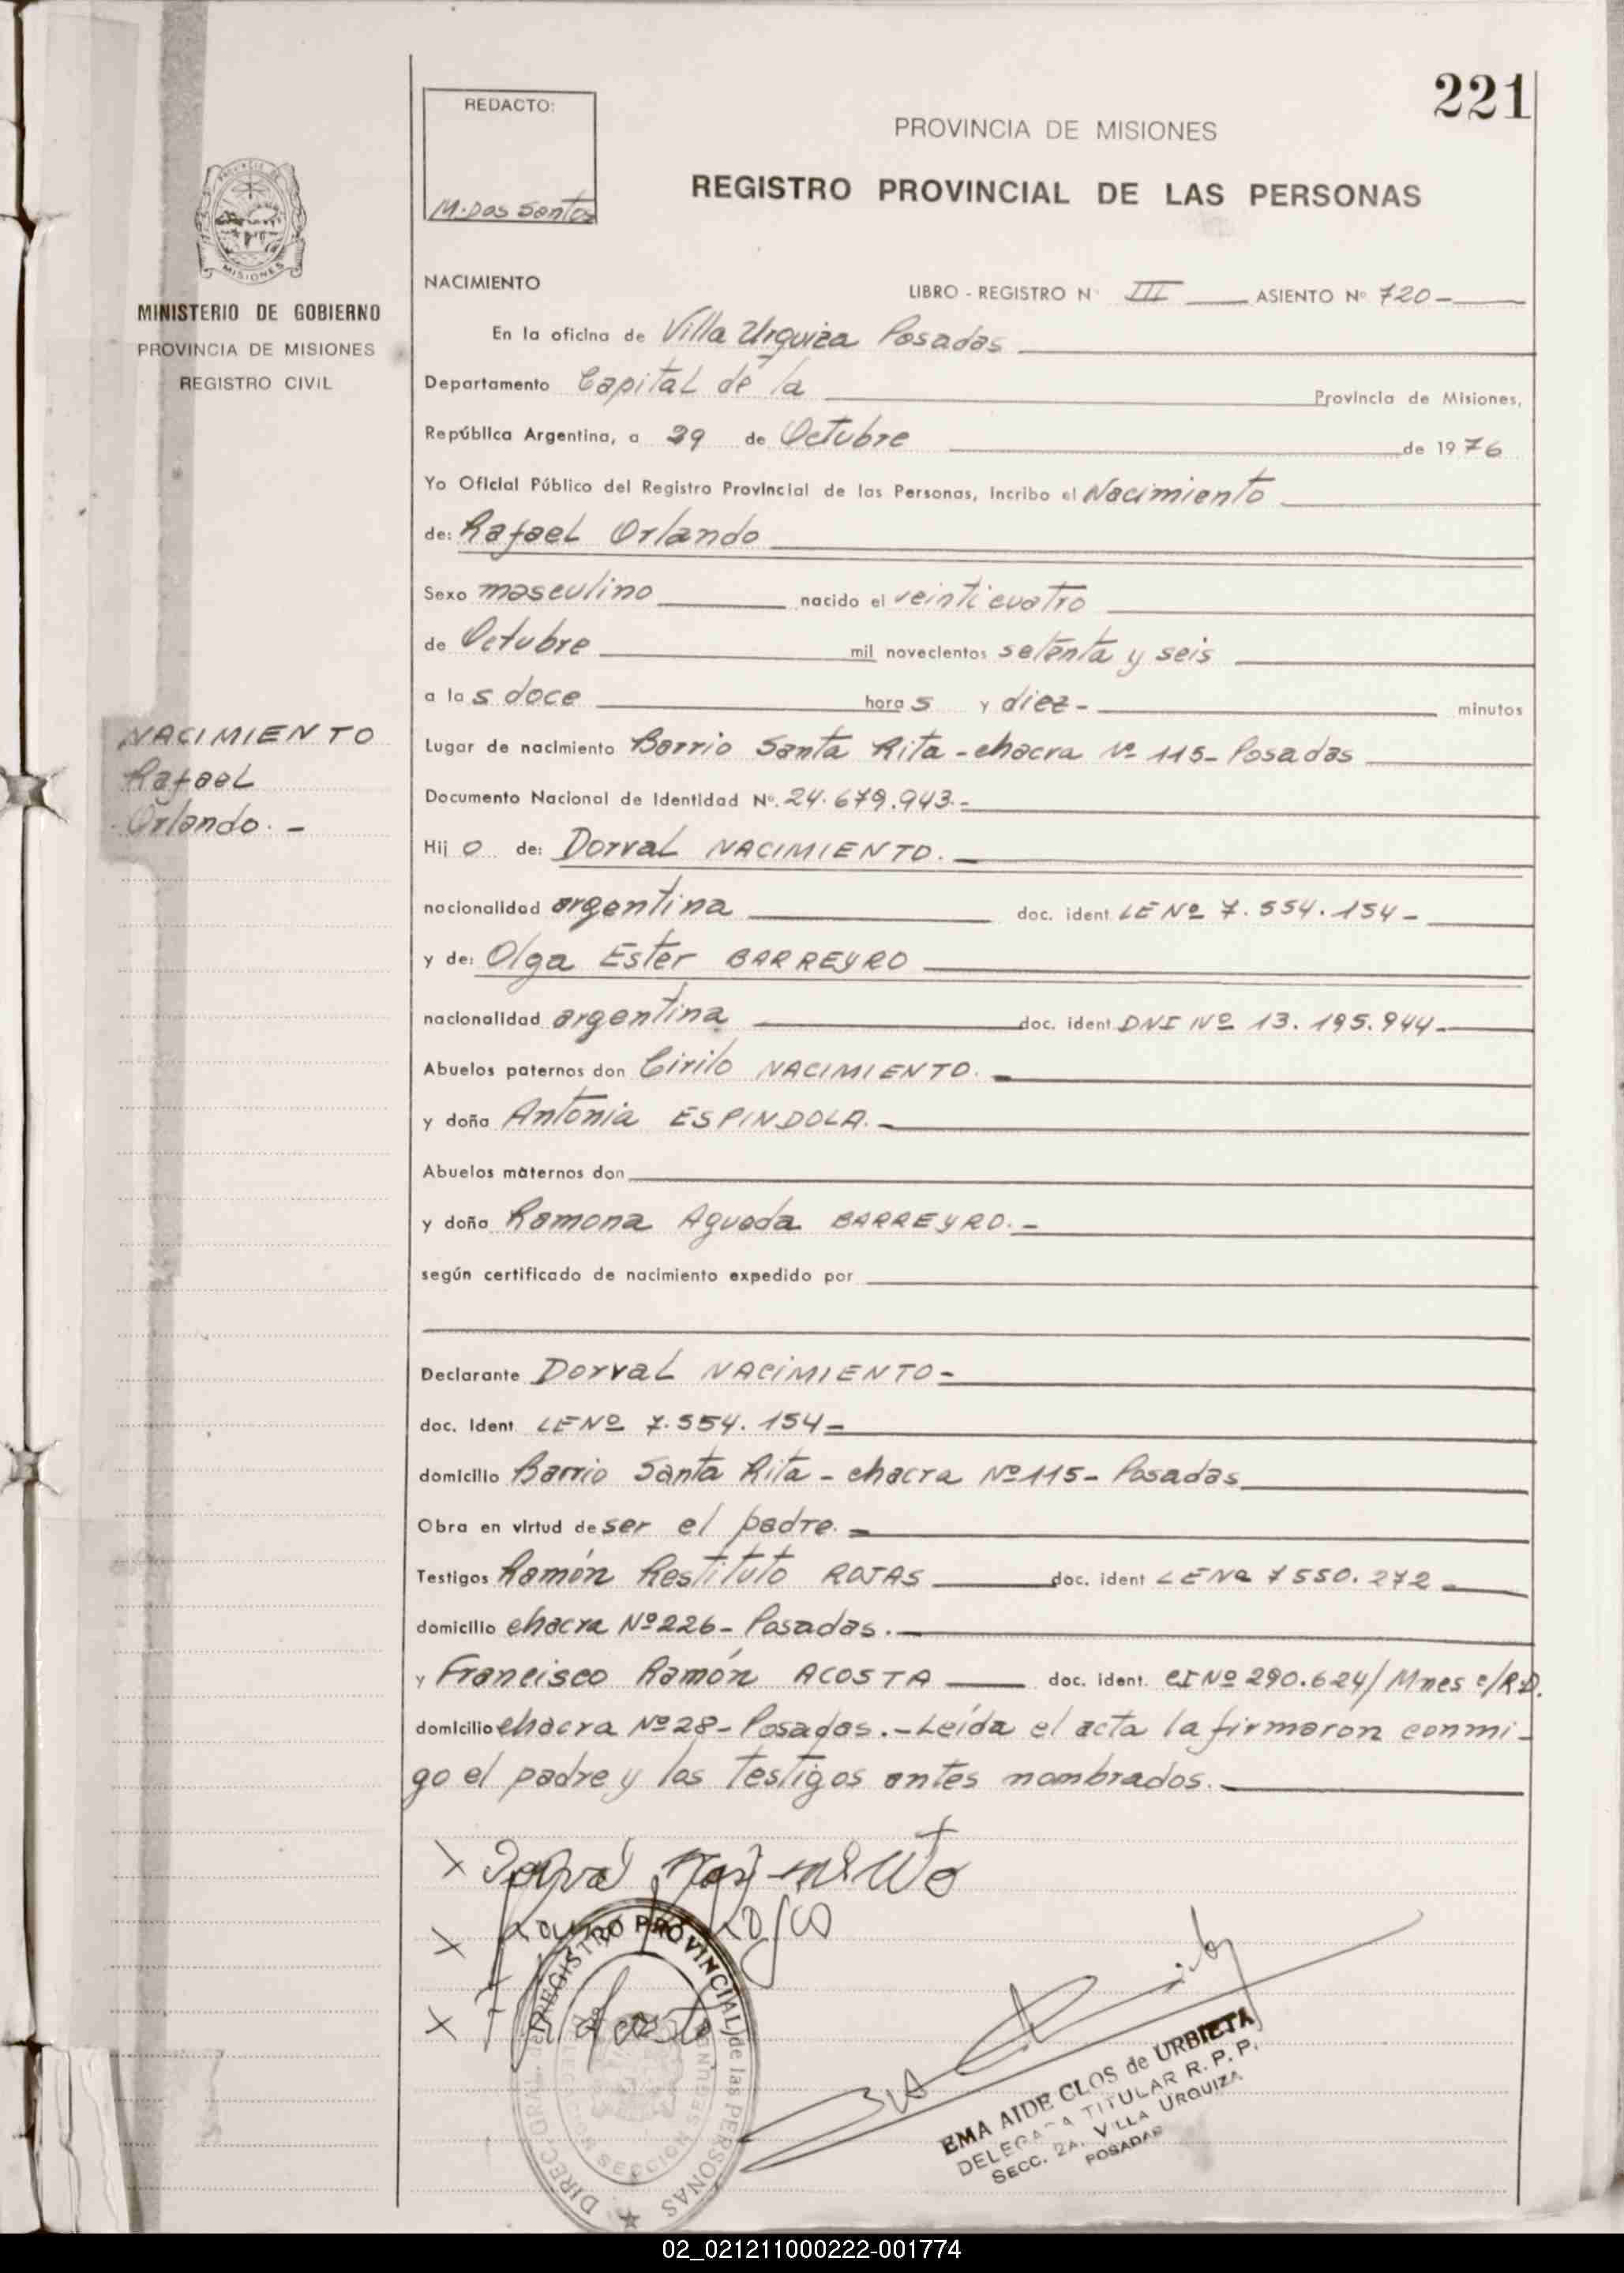 221
REDACTO:
M. Dos Santos
PROVINCIA DE MISIONES
REGISTRO PROVINCIAL DE LAS PERSONAS
MISIONES
MINISTERIO DE GOBIERNO
PROVINCIA DE MISIONES
REGISTRO CIVIL
NACIMIENTO
LIBRO - REGISTRO Nº III ASIENTO Nº 720-
En la oficina de Villa Urquiza Posadas
Departamento Capital de la Provincia de Misiones,
República Argentina, a 29 de Octubre de 1976
Yo Oficial Público del Registro Provincial de las Personas, Incribo el Nacimiento
de: Rafael Orlando
Sexo masculino nacido el veinticuatro
de Octubre mil novecientos setenta y seis
a las doce horas y diez- minutos
NACIMIENTO
Rafael
Orlando. -
Lugar de nacimiento Barrio Santa Rita - chacra Nº 115- Posadas
Documento Nacional de Identidad Nº. 24.679.943.-
Hijo de: Dorval NACIMIENTO. -
nacionalidad argentina doc. ident LE Nº 7.554.154-
y de: Olga Ester BARREYRO
nacionalidad argentina doc. ident DNI Nº 13.195.944-
Abuelos paternos don Cirilo NACIMIENTO. -
y doña Antonia ESPINDOLA. -
Abuelos maternos don
y doña Ramona Agueda BARREYRO. -
según certificado de nacimiento expedido por
Declarante Dorval NACIMIENTO-
doc. Ident LE Nº 7.554.154-
domicilio Barrio Santa Rita - chacra Nº 115- Posadas
Obra en virtud de ser el padre. -
Testigos Ramón Restituto ROJAS doc. ident LE Nº 7550.272-
domicilio chacra Nº 226- Posadas. -
y Francisco Ramón ACOSTA doc. ident. CI Nº 290.624/ Mnes c/R.D.
domicilio chacra Nº 28- Posadas. - Leída el acta la firmaron conmi-
go el padre y los testigos antes nombrados. -
X Dorval Nacimiento
X Rojas
X Acosta
DIREC. GRAL. del REGISTRO PROVINCIAL de las PERSONAS
SECCION SEGUNDA
EMA AIDE CLOS de URBIETA
DELEGADA TITULAR R. P. P.
SECC. 2A. VILLA URQUIZA
POSADAS
02_021211000222-001774